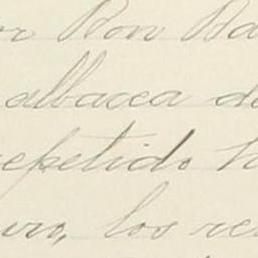 or Don Ba
albacea de
repetido h
uro, los re